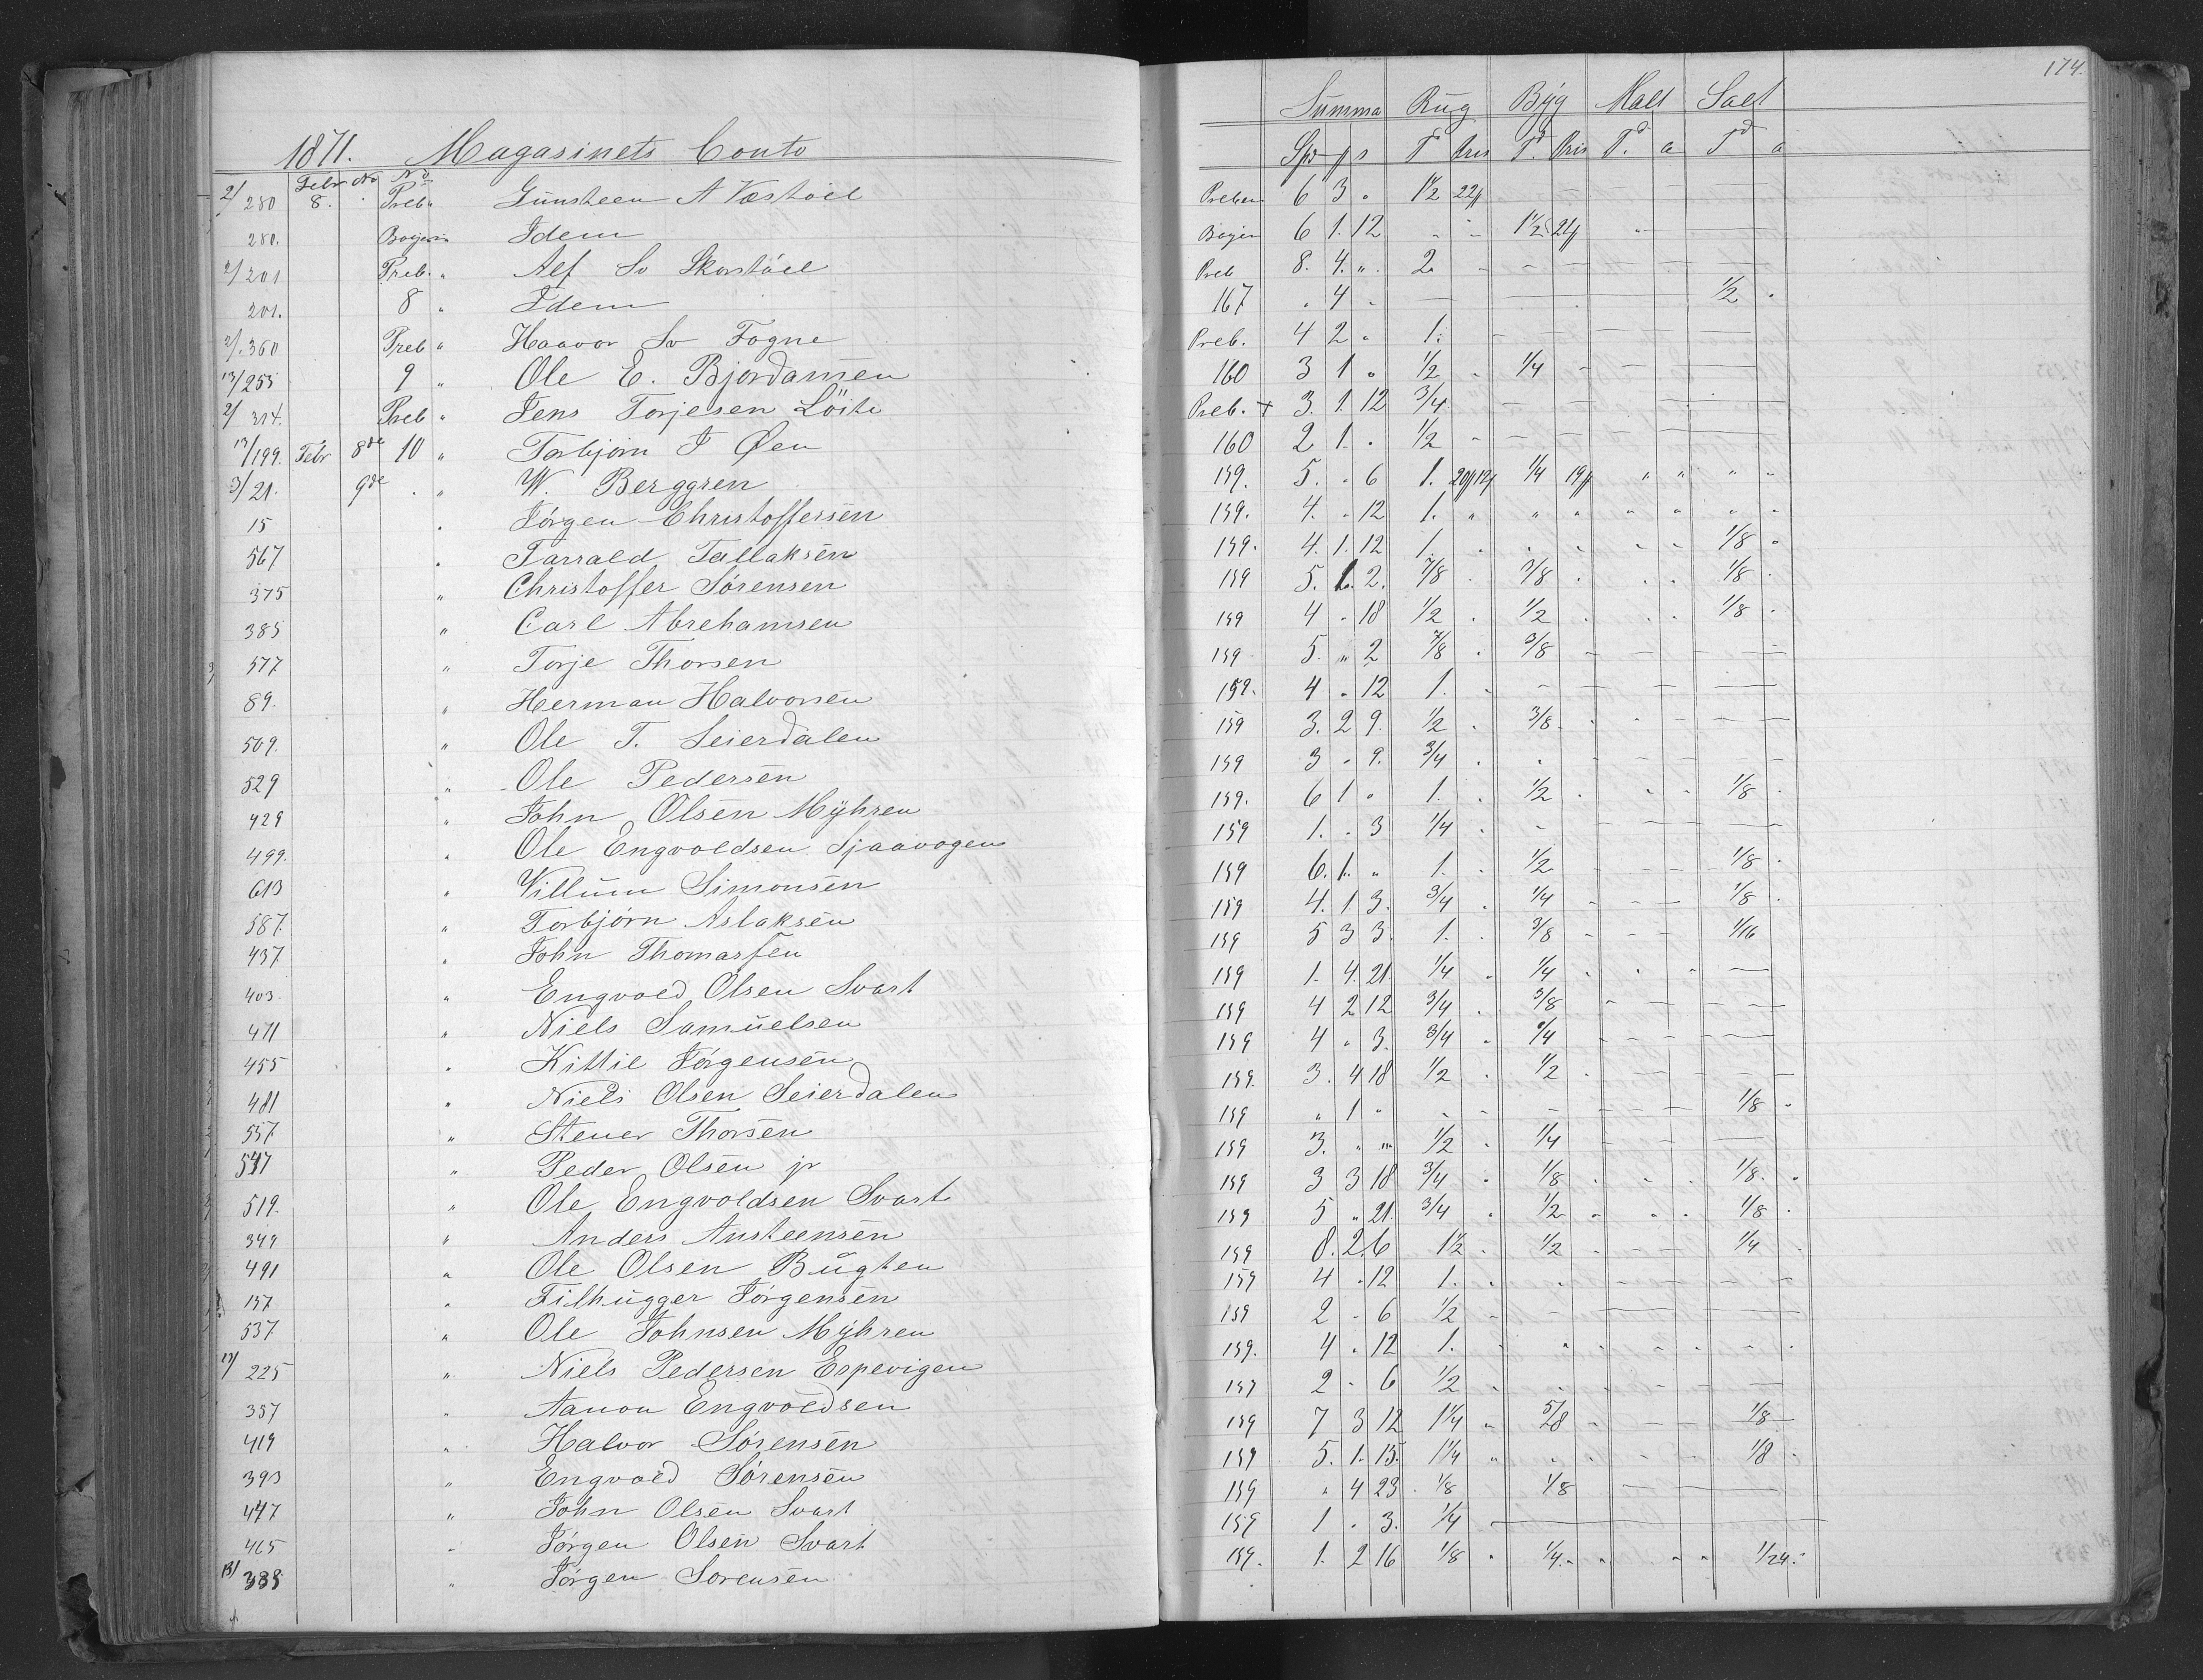 174.
1871. Magasinets Conto Summa Rug Byg Malt Salt
Febr No No Spd ₰ s Td Pris Td Pris Td. a Td a
2/280 8. Preb " Gunsteen A Væstöel Preben 6 3 " 1½ 22
280. " Idem 6 1. 12 " " 1½ 21
2/201 Preb. " Alf So Skorstöel Preb 8. 4. " 2.
201. 8 " Idem 167 " 4 " ½
2/.360 Preb " Haavor So Fogne Preb. 4 2 " 1.
13/255 9 " Ole E. Bjordamsen 160 3 1 " ½ ¼
2/314. Preb " Jens Torjesen Löite Preb. + 3. 1. 12 ¾
13/199. Febr 8de 10 " Torbjörn J Øen 160 2 1. " ½
3/21. 9de " W. Berggren 159. 5. " 6 1. ¼ 19
15 " Jörgen Christoffersen 159. 4. " 12 1.
567 " Tarrald Tallaksen 159. 4. 1. 12 1. 1/8
375 " Christoffer Sörensen 159 5. 1. 2. 7/8 3/8 1/8
385 " Carl Abrehamsen 159 4 " 18 ½ ½ 1/8
577 " Torje Thorsen 159 5. " 2 7/8 3/8
89. " Herman Halvorsen 159. 4 " 12 1.
509. " Ole T. Seierdalen 159 3. 2 9. ½ 3/8
529 " Ole Pedersen 159 3 " 9. ¾
429 " John Olsen Myhren 159. 6 1 " 1. ½ 1/8
499. " Ole Engvoldsen Sjaavogen 159 1. " 3 ¼
613 " Villum Simonsen 159 6. 1. " 1. ½ 1/8
587. " Torbjörn Aslaksen 159 4. 1. 3. ¾ ¼ 1/8
437 " John Thomassen 159 5 3 3. 1. 3/8 1/16
403. " Engvold Olsen Svart 159 1. 4. 21. ¼ ¼
471 " Niels Samuelsen 159 4 2 12 ¾ 3/8
455 " Kittil Jörgensen 159 4 " 3. ¾ ¼
481 " Niels Olsen Seierdalen 159. 3. 4 18 ½ ½
557 " Stener Thorsen 159 " 1 " 1/8
547 " Peder Olsen jr 159 3. " " ½ ¼
519. " Ole Engvoldsen Svart 159 3 3 18 ¾ 1/8 1/8.
349 " Anders Austeensen 159 5 " 21. ¾ ½ 1/8
491 " Ole Olsen Bugten 159 8. 2. 6 1½ ½ ¼
157 " Filhugger Jörgensen 159 4 " 12 1.
537 " Ole Johnsen Myhren 159 2 " 6 ½
13/225 " Niels Pedersen Espevigen 159. 4 " 12 1.
357 " Aanon Engvoldsen 159 2 " 6 ½
419 " Halvor Sörensen 159 7 3 12 1¼ 5/8 1/8
393 " Engvold Sörensen 159 5. 1. 15. 1¼ 1/8
447 " John Olsen Svart 159 " 4 23 1/8 1/8
465 " Jörgen Olsen Svart 159 1 " 3. ¼
13/383 " Jörgen Sorensen 159. 1. 2 16 1/8 ¼ 1/24